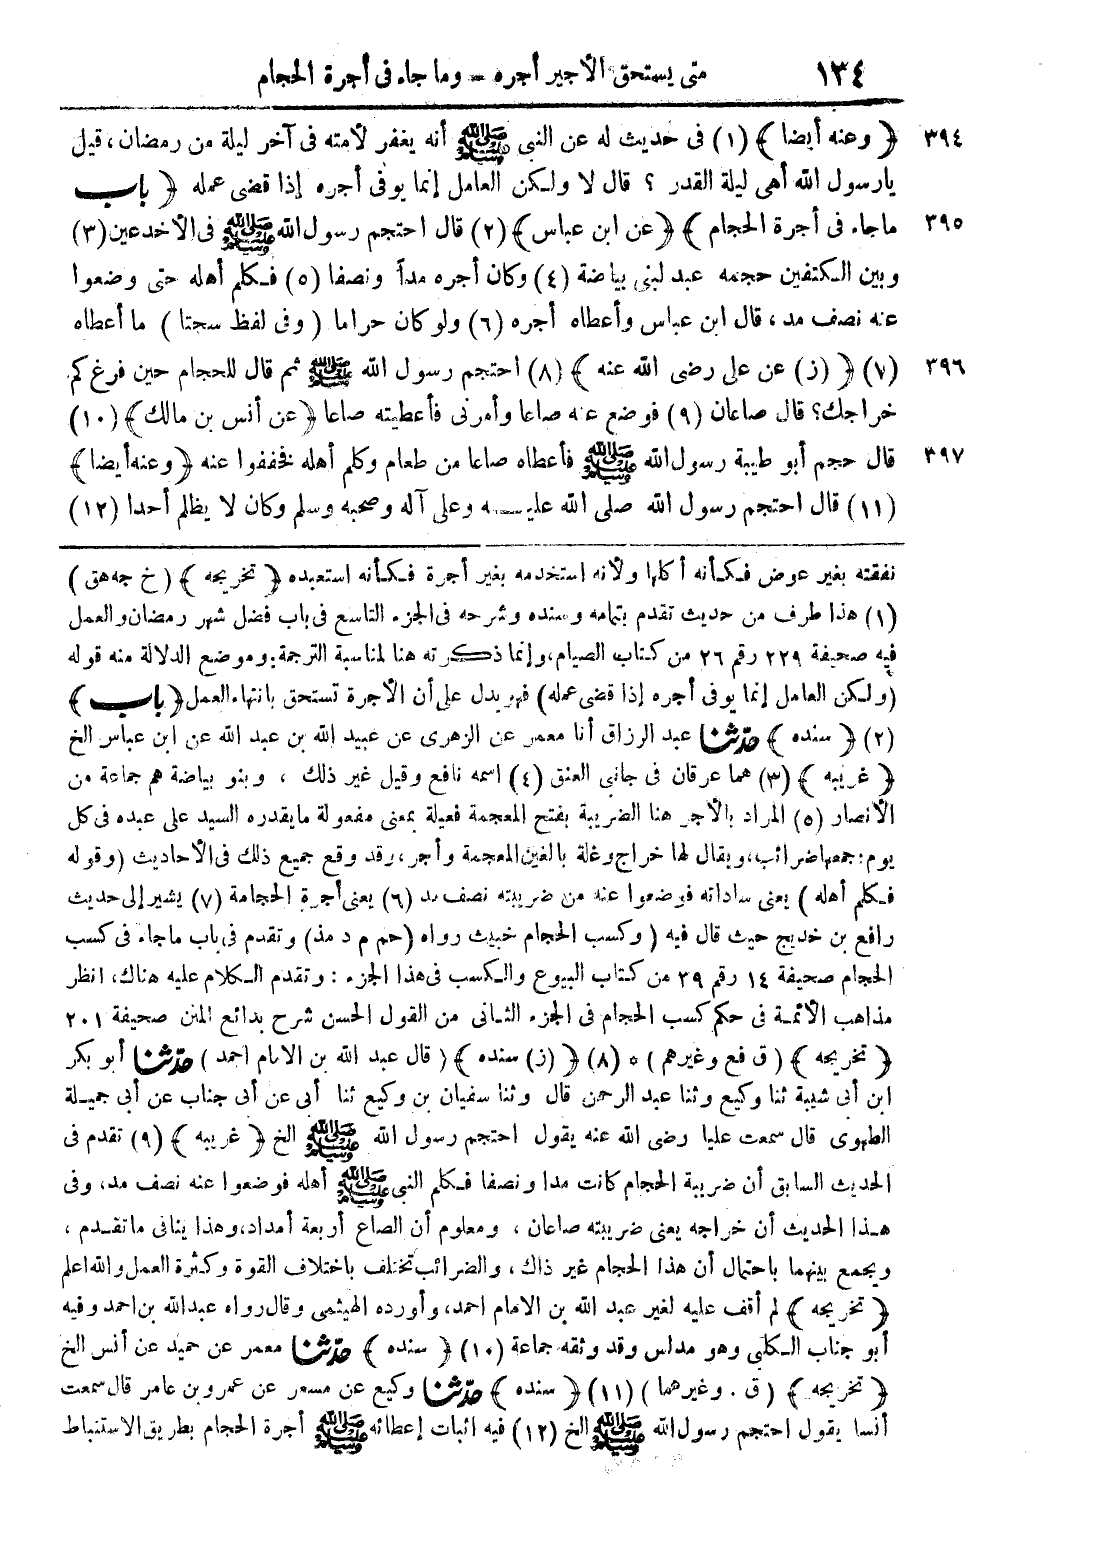 ١٣٤ متى يستحق الأجير أجره – وما جاء فى أجرة الحجام
٣٩٤ ﴿ وعنه أيضا ﴾ (١) فى حديث له عن النبى ﷺ أنه يغفر لأمته فى آخر ليلة من رمضان ، قيل
يارسول الله أهى ليلة القدر ؟ قال لا ولكن العامل إنما يوفى أجره إذا قضى عمله ﴿ باب
٣٩٥ ماجاء فى أجرة الحجام ﴾ ﴿ عن ابن عباس ﴾ (٢) قال احتجم رسول الله ﷺ فى الأخدعين (٣)
وبين الكتفين حجمه عبد لبنى بياضة (٤) وكان أجره مداً ونصفا (٥) فكلم أهله حتى وضعوا
عنه نصف مد ، قال ابن عباس وأعطاه أجره (٦) ولو كان حراما ( وفى لفظ سحتا ) ما أعطاه
٣٩٦ (٧) ﴿ (ز) عن على رضى الله عنه ﴾ (٨) احتجم رسول الله ﷺ ثم قال للحجام حين فرغ كم
خراجك؟ قال صاعان (٩) فوضع عنه صاعا وأمرنى فأعطيته صاعا ﴿ عن أنس بن مالك ﴾ (١٠)
٣٩٧ قال حجم أبو طيبة رسول الله ﷺ فأعطاه صاعا من طعام وكلم أهله فخففوا عنه ﴿ وعنه أيضا ﴾
(١١) قال احتجم رسول الله صلى الله عليه وعلى آله وصحبه وسلم وكان لا يظلم أحدا (١٢)
نفقته بغير عوض فكأنه أكلها ولأنه استخدمه بغير أجرة فكأنه استعبده ﴿ تخريجه ﴾ ( خ جه هق )
(١) هذا طرف من حديث تقدم بتمامه وسنده وشرحه فى الجزء التاسع فى باب فضل شهر رمضان والعمل
فيه صحيفة ٢٢٩ رقم ٢٦ من كتاب الصيام، وإنما ذكرته هنا لمناسبة الترجمة: وموضع الدلالة منه قوله
(ولكن العامل إنما يوفى أجره إذا قضى عمله) فهو يدل على أن الأجرة تستحق بانتهاء العمل ﴿ باب ﴾
(٢) ﴿ سنده ﴾ حدثنا عبد الرزاق أنا معمر عن الزهرى عن عبيد الله بن عبد الله عن ابن عباس الخ
﴿ غريبه ﴾ (٣) هما عرقان فى جانبى العنق (٤) اسمه نافع وقيل غير ذلك ، وبنو بياضة هم جماعة من
الأنصار (٥) المراد بالأجر هنا الضريبة بفتح المعجمة فعيلة بمعنى مفعولة مايقدره السيد على عبده فى كل
يوم: جمعها ضرائب، ويقال لها خراج وغلة بالغين المعجمة وأجر، وقد وقع جميع ذلك فى الأحاديث (وقوله
فكلم أهله ) يعنى ساداته فوضعوا عنه من ضريبته نصف مد (٦) يعنى أجرة الحجامة (٧) يشير إلى حديث
رافع بن خديج حيث قال فيه ( وكسب الحجام خبيث رواه (حم م د مذ) وتقدم فى باب ماجاء فى كسب
الحجام صحيفة ١٤ رقم ٣٩ من كتاب البيوع والكسب فى هذا الجزء : وتقدم الكلام عليه هناك، انظر
مذاهب الأئمة فى حكم كسب الحجام فى الجزء الثانى من القول الحسن شرح بدائع المنن صحيفة ٢٠١
﴿ تخريجه ﴾ ( ق فع وغيرهم ) * (٨) ﴿ (ز) سنده ﴾ ( قال عبد الله بن الامام احمد ) حدثنا أبو بكر
ابن أبى شيبة ثنا وكيع وثنا عبد الرحمن قال وثنا سفيان بن وكيع ثنا أبى عن أبى جناب عن أبى جميلة
الطهوى قال سمعت عليا رضى الله عنه يقول احتجم رسول الله ﷺ الخ ﴿ غريبه ﴾ (٩) تقدم فى
الحديث السابق أن ضريبة الحجام كانت مدا ونصفا فكلم النبى ﷺ أهله فوضعوا عنه نصف مد، وفى
هذا الحديث أن خراجه يعنى ضريبته صاعان ، ومعلوم أن الصاع أربعة أمداد، وهذا ينافى ماتقدم ،
ويجمع بينهما باحتمال أن هذا الحجام غير ذاك ، والضرائب تختلف باختلاف القوة وكثرة العمل والله اعلم
﴿ تخريجه ﴾ لم أقف عليه لغير عبد الله بن الامام احمد، وأورده الهيثمى وقال رواه عبدالله بن احمد وفيه
أبو جناب الكلبى وهو مدلس وقد وثقه جماعة (١٠) ﴿ سنده ﴾ حدثنا معمر عن حميد عن أنس الخ
﴿ تخريجه ﴾ ( ق . وغيرهما ) (١١) ﴿ سنده ﴾ حدثنا وكيع عن مسعر عن عمرو بن عامر قال سمعت
أنسا يقول احتجم رسول الله ﷺ الخ (١٢) فيه اثبات إعطائه ﷺ أجرة الحجام بطريق الاستنباط